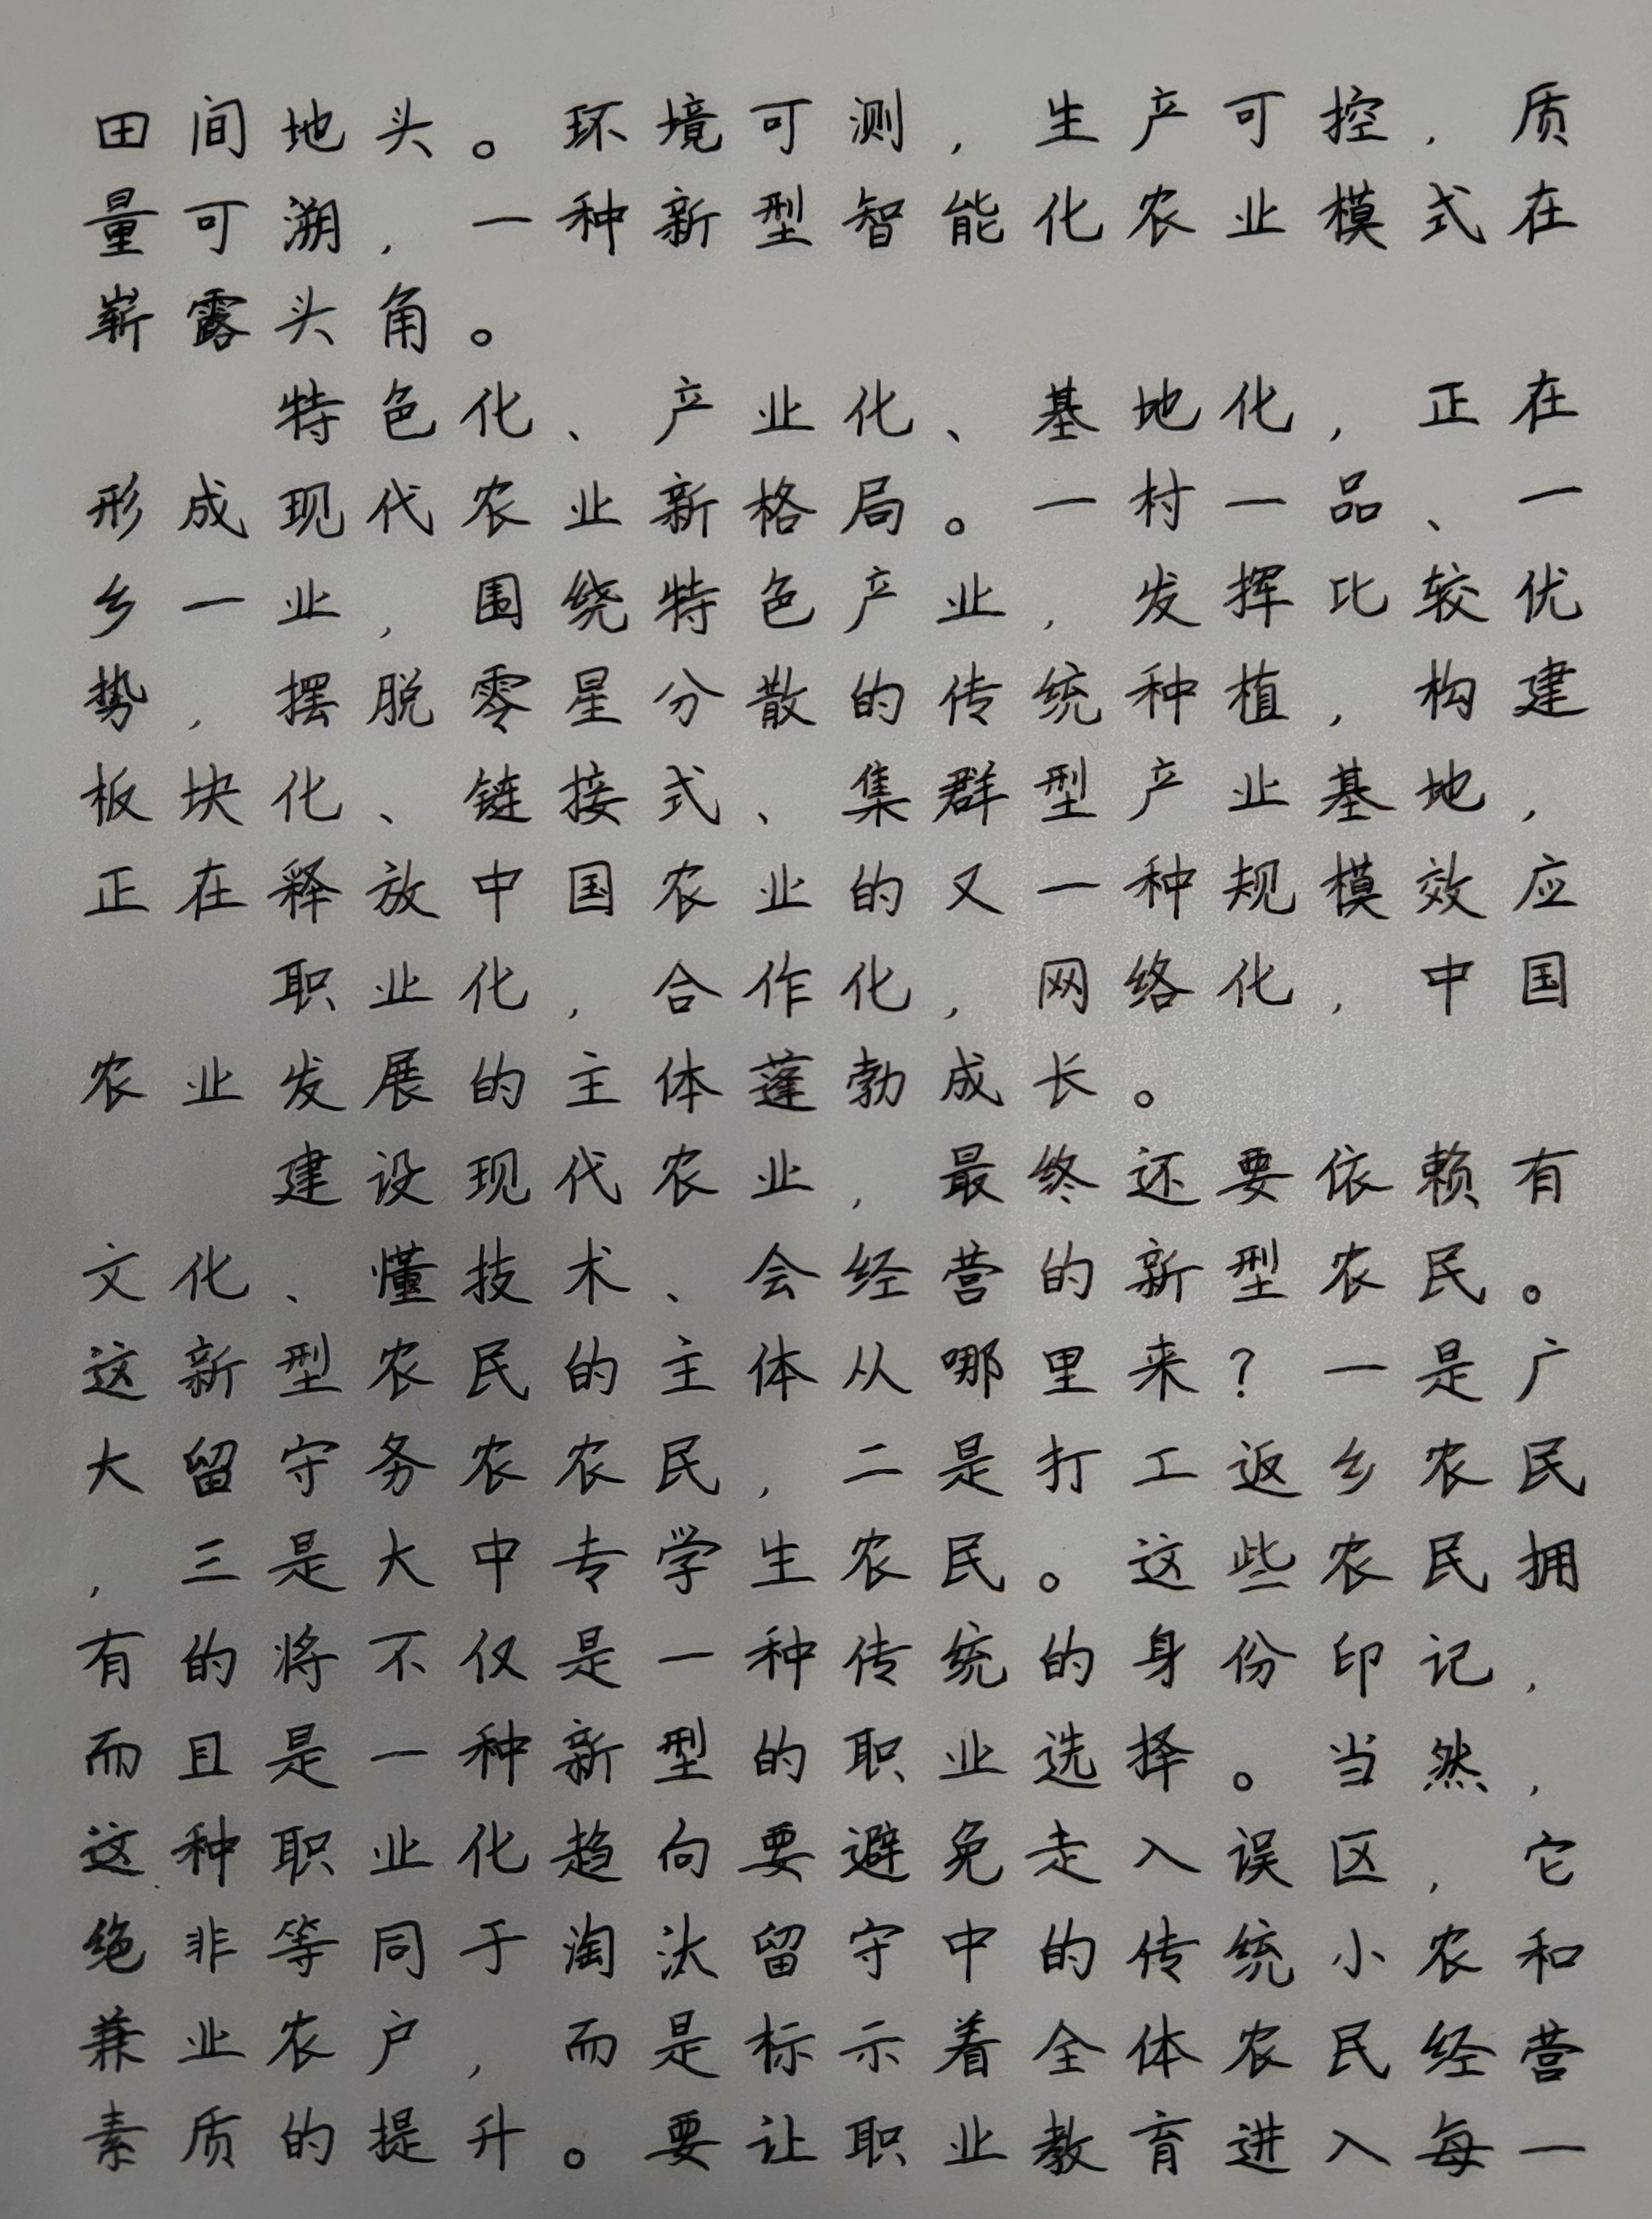 田间地头。环境可测，生产可控，质
量可溯，一种新型智能化农业模式在
崭露头角。
特色化、产业化、基地化，正在
形成现代农业新格局。一村一品、一
乡一业，围绕特色产业，发挥比较优
势，摆脱零星分散的传统种植，构建
板块化、链接式、集群型产业基地，
正在释放中国农业的又一种规模效应
职业化，合作化，网络化，中国
农业发展的主体蓬勃成长。
建设现代农业，最终还要依赖有
文化、懂技术、会经营的新型农民。
这新型农民的主体从哪里来？一是广
大留守务农农民，二是打工返乡农民
，三是大中专学生农民。这些农民拥
有的将不仅是一种传统的身份印记，
而且是一种新型的职业选择。当然，
这种职业化趋向要避免走入误区，它
绝非等同于淘汰留守中的传统小农和
兼业农户，而是标示着全体农民经营
素质的提升。要让职业教育进入每一